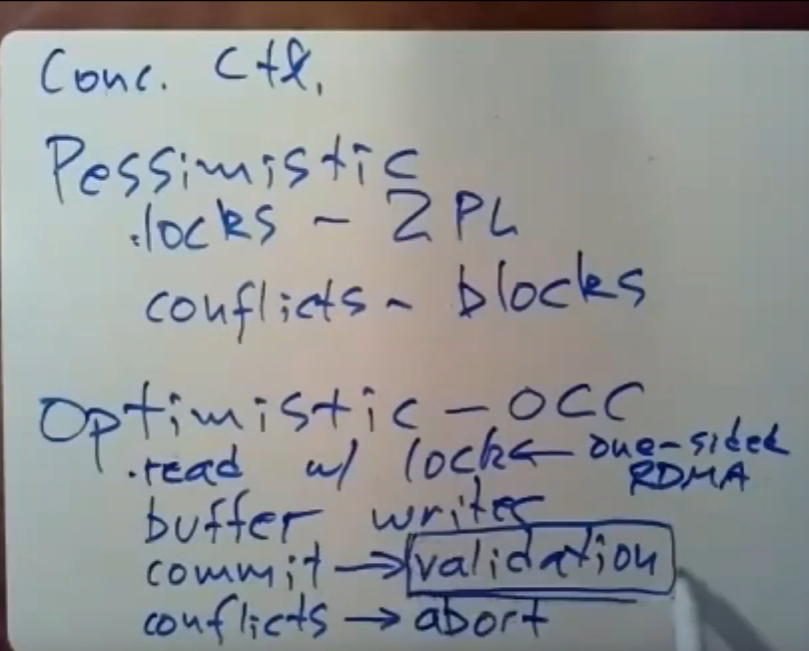 Conc. Ctl.
Pessimistic
.locks - 2PL
conflicts - blocks
Optimistic - OCC
.read w/ lock ← one-sided
RDMA
buffer writes
commit → validation
conflicts → abort